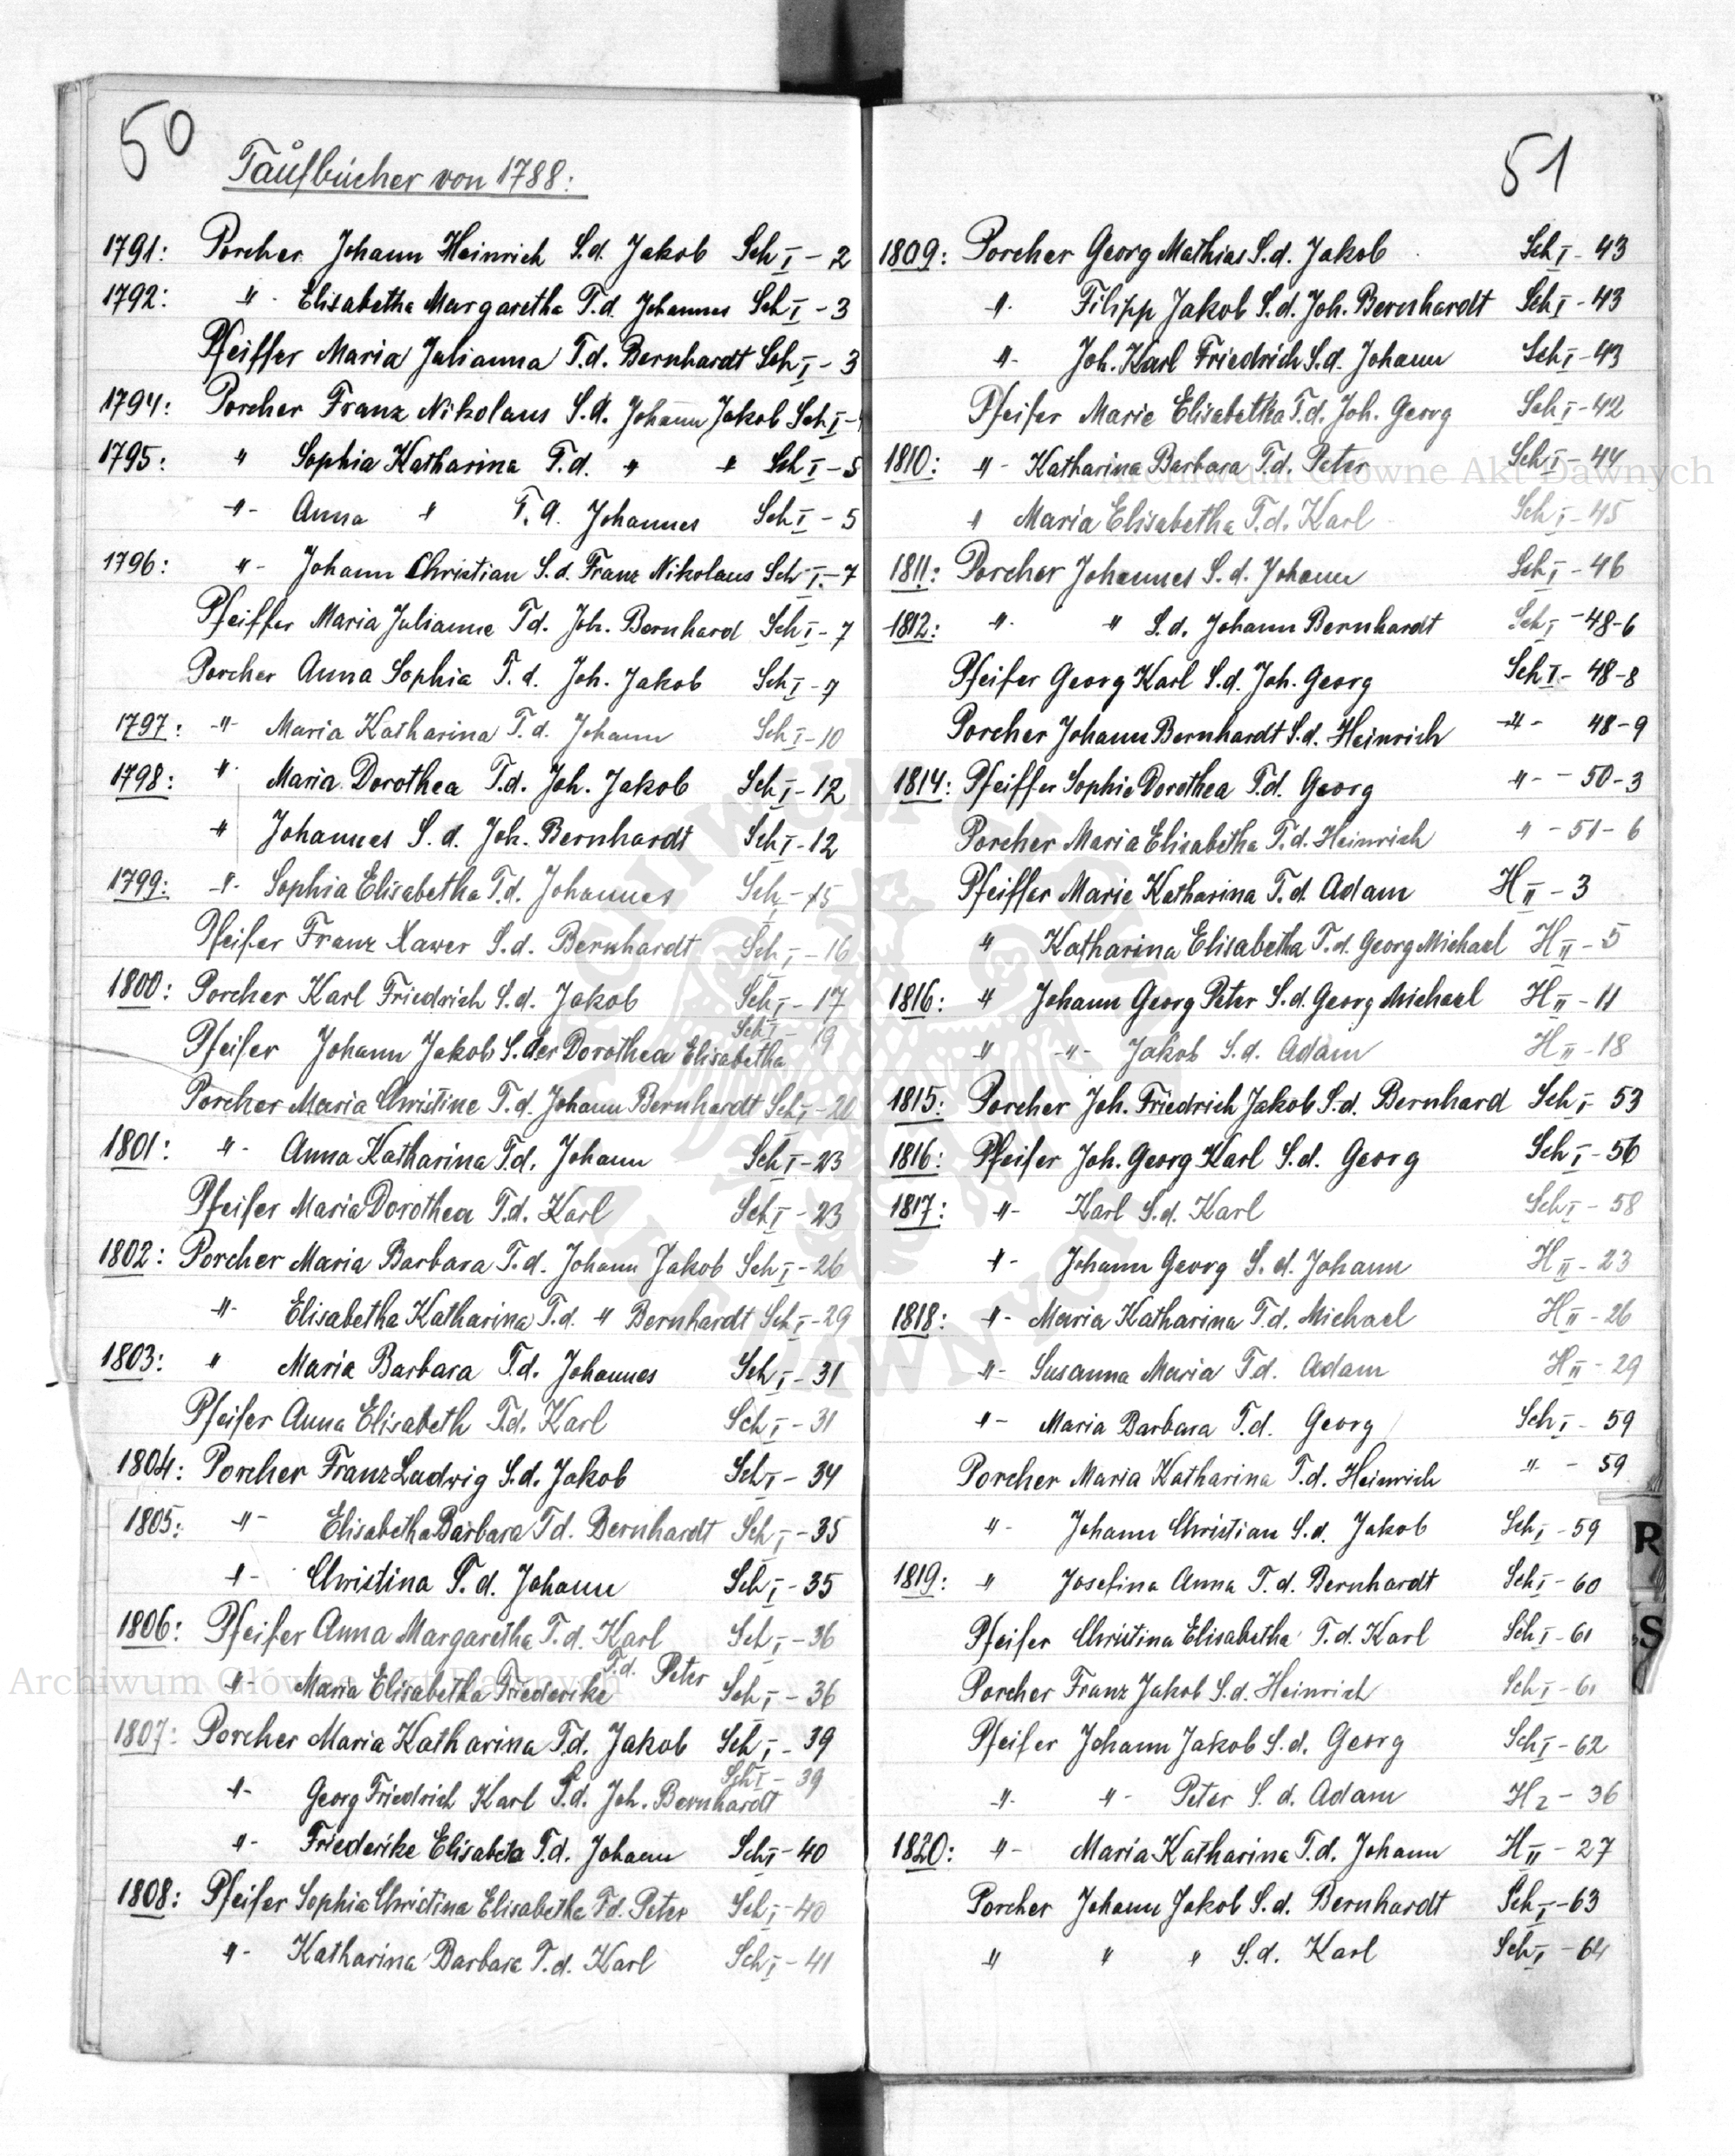 50
Taufbücher von 1788:
1791: Porcher Johann Heinrich S.d. Jakob Sch I - 2
1792: -"- Elisabetha Margaretha T.d. Johannes Sch I - 3
Pfeiffer Maria Julianna T.d. Bernhardt Sch I - 3
1794: Porcher Franz Nikolaus S.d. Johann Jakob Sch I -
1795: " Sophia Katharina T.d. " " Sch I - 5
-"- Anna " T.d. Johannes Sch I - 5
1796: -"- Johann Christian S.d. Franz Nikolaus Sch I. - 7
Pfeiffer Maria Julianne T.d. Joh. Bernhard Sch I - 7
Porcher Anna Sophia T.d. Joh. Jakob Sch I - 7
1797: -"- Maria Katharina T.d. Johann Sch I - 10
1798: " Maria Dorothea T.d. Joh. Jakob Sch I - 12
" Johannes S.d. Joh. Bernhardt Sch I - 12
1799: -"- Sophia Elisabetha T.d. Johannes Sch I - 15
Pfeifer Franz Xawer S.d. Bernhardt Sch I - 16
1800: Porcher Karl Friedrich S.d. Jakob Sch I - 17
Pfeifer Johann Jakob S. der Dorothea Elisabetha Sch I - 19
Porcher Maria Christine T.d. Johann Bernhardt Sch I - 20
1801: -"- Anna Katharina T.d. Johann Sch I - 23
Pfeifer Maria Dorothea T.d. Karl Sch I - 23
1802: Porcher Maria Barbara T.d. Johann Jakob Sch I - 26
-"- Elisabetha Katharina T.d. " Bernhardt Sch I - 29
1803: " Maria Barbara T.d. Johannes Sch I - 31
Pfeifer Anna Elisabeth T.d. Karl Sch I - 31
1804: Porcher Franz Ludwig S.d. Jakob Sch I - 34
1805: -"- Elisabetha Barbara T.d. Bernhardt Sch I - 35
-"- Christina T.d. Johann Sch I - 35
1806: Pfeifer Anna Margaretha T.d. Karl Sch I - 36
-"- Maria Elisabetha Friederike T.d. Peter Sch I - 36
1807: Porcher Maria Katharina T.d. Jakob Sch I - 39
-"- Georg Friedrich Karl S.d. Joh. Bernhardt Sch I - 39
-"- Friederike Elisabeta T.d. Johann Sch I - 40
1808: Pfeifer Sophia Christina Elisabetha T.d. Peter Sch I - 40
-"- Katharina Barbara T.d. Karl Sch I - 41
51
1809: Porcher Georg Mathias S.d. Jakob Sch I - 43
-"- Filipp Jakob S.d. Joh. Bernhardt Sch I - 43
-"- Joh. Karl Friedrich S.d. Johann Sch I - 43
Pfeifer Marie Elisabetha T.d. Joh. Georg Sch I - 42
1810: -"- Katharina Barbara T.d. Peter Sch I - 44
" Maria Elisabetha T.d. Karl Sch I - 45
1811: Porcher Johannes S.d. Johann Sch I - 46
1812: -"- " S.d. Johann Bernhardt Sch I - 48-6
Pfeifer Georg Karl S.d. Joh. Georg Sch I - 48-8
Porcher Johann Bernhardt S.d. Heinrich -"- 48-9
1814: Pfeiffer Sophie Dorothea T.d. Georg -"- - 50-3
Porcher Maria Elisabetha T.d. Heinrich " - 51-6
Pfeiffer Marie Katharina T.d. Adam H II - 3
" Katharina Elisabetha T.d. Georg Michael H II - 5
1816: " Johann Georg Peter S.d. Georg Michael H II - 11
" -"- Jakob S.d. Adam H II - 18
1815: Porcher Joh. Friedrich Jakob S.d. Bernhard Sch I - 53
1816: Pfeifer Joh. Georg Karl S.d. Georg Sch I - 56
1817: -"- Karl S.d. Karl Sch I - 58
-"- Johann Georg S.d. Johann H II - 23
1818: -"- Maria Katharina T.d. Michael H II - 26
-"- Susanna Maria T.d. Adam H II - 29
-"- Maria Barbara T.d. Georg Sch I - 59
Porcher Maria Katharina T.d. Heinrich -"- - 59
-"- Johann Christian S.d. Jakob Sch I - 59
1819: " Josefina Anna T.d. Bernhardt Sch I - 60
Pfeifer Christina Elisabetha T.d. Karl Sch I - 61
Porcher Franz Jakob S.d. Heinrich Sch I - 61
Pfeifer Johann Jakob S.d. Georg Sch I - 62
-"- -"- Peter S.d. Adam H 2 - 36
1820: -"- Maria Katharina T.d. Johann H II - 27
Porcher Johann Jakob S.d. Bernhardt Sch I - 63
" " " S.d. Karl Sch I - 64
R
S
Archiwum Główne Akt Dawnych
Archiwum Główne Akt Dawnych